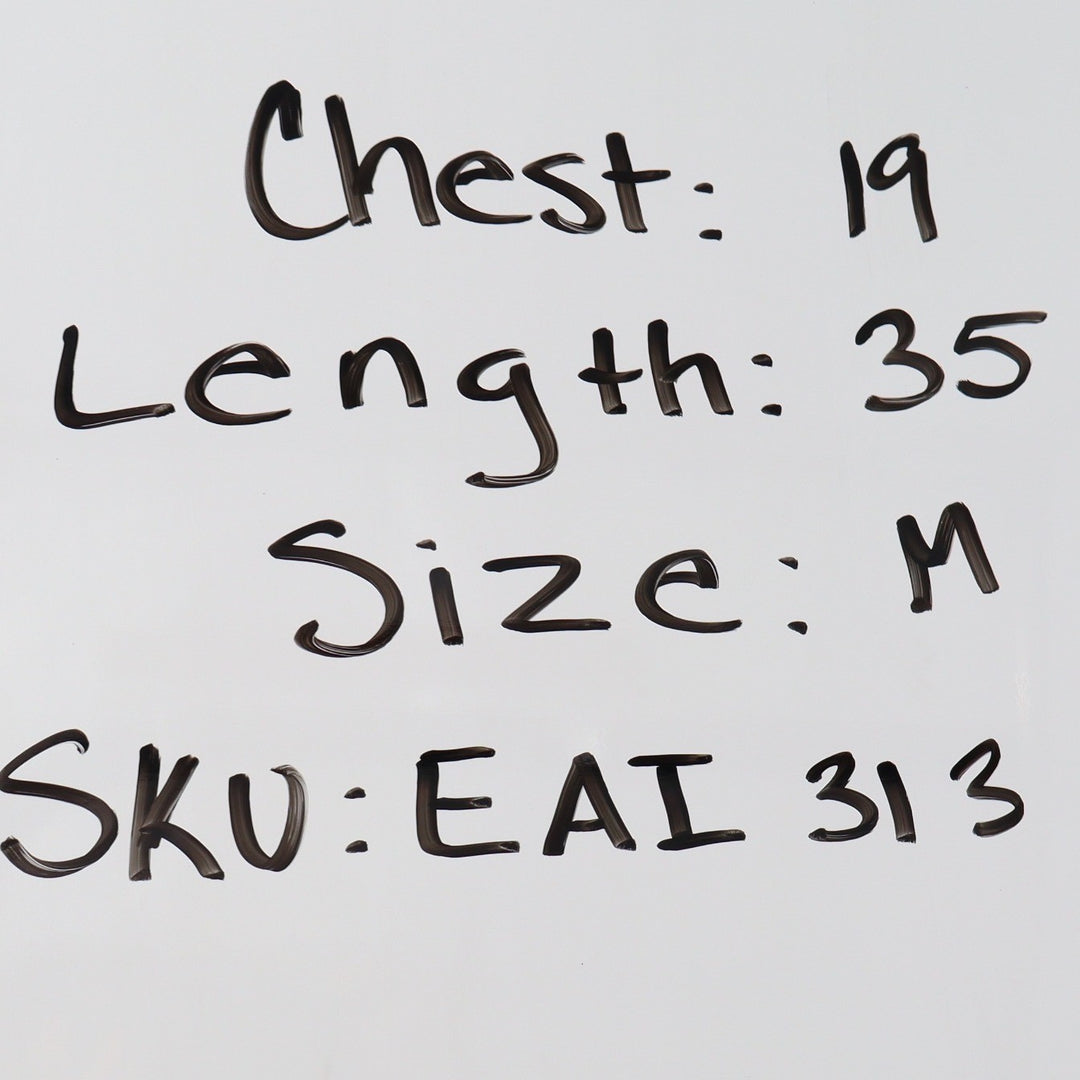 Chest: 19
Length: 35
Size: M
SKU: EAI 313